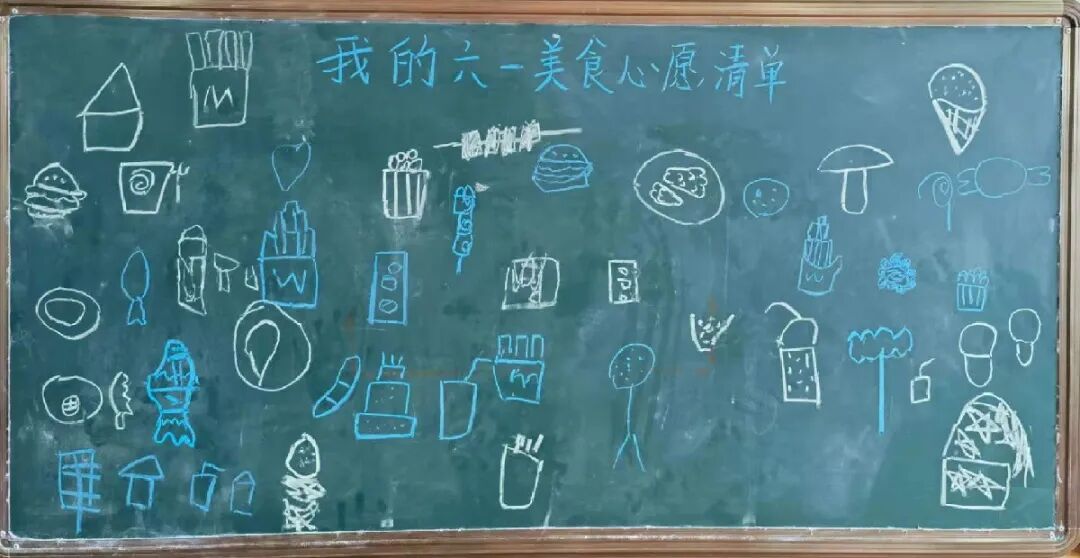 我的六一美食心愿清单